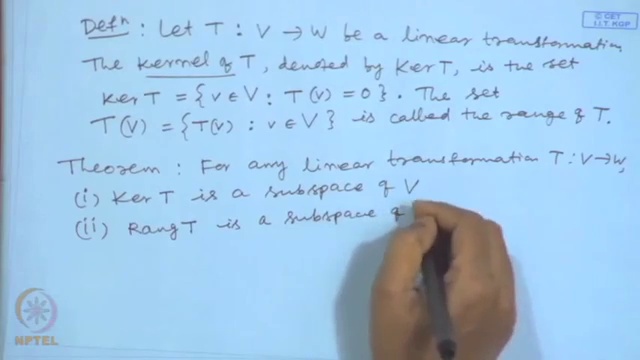 © CET
I.I.T. KGP
Defⁿ : Let T : V → W be a linear transformation
The Kernel of T, denoted by Ker T, is the set
Ker T = {v ∈ V : T(v) = 0}. The set
T(V) = {T(v) : v ∈ V} is called the range of T.
Theorem : For any linear transformation T : V → W,
(i) Ker T is a subspace of V
(ii) Rang T is a subspace of
NPTEL